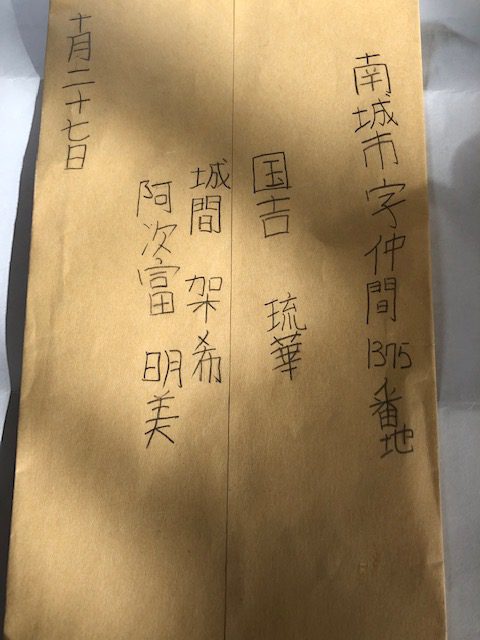 南城市字仲間1375番地
国吉 琉華
城間 架希
阿次富 明美
十月二十七日